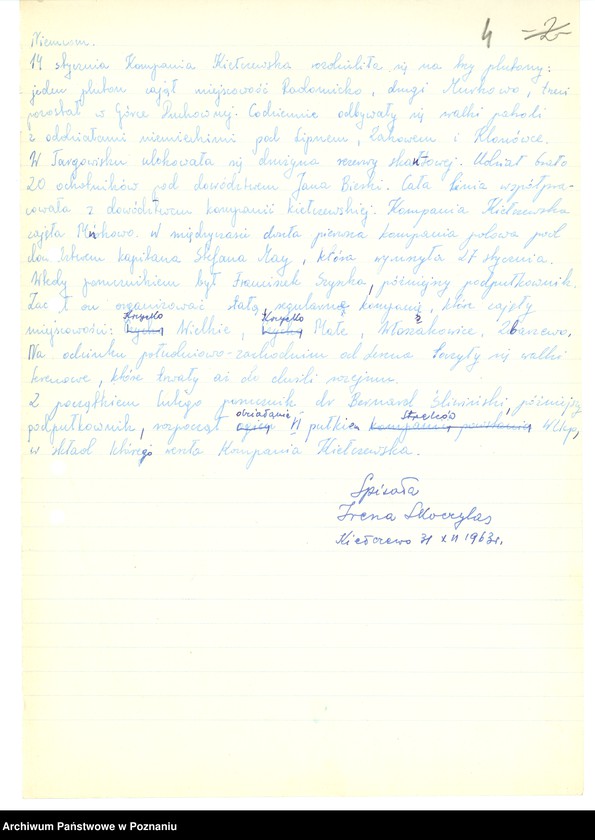 4 -2-
Niemcom.
14 stycznia Kompania Kiełczewska rozdzieliła się na trzy plutony:
jeden pluton zajął miejscowość Radomicko, drugi Murkowo, trzeci
pozostał w Górce Duchownej. Codziennie odbywały się walki
z oddziałami niemieckimi pod Lipnem, Zakowem i Klonówcem.
W Targowisku ulokowała się drużyna rezerwy skautowej. Udział brało
20 ochotników pod dowództwem Jana Bieski. Cała linia współpra-
cowała z dowództwem kompanii kiełczewskiej. Kompania Kiełczewska
zajęła Mórkowo. W międzyczasie doszła pierwsza kompania polowa pod
dowództwem kapitana Stefana May, która wyruszyła 27 stycznia.
Wtedy porucznikiem był Franciszek Szyszka, późniejszy podpułkownik.
Zaczął on organizować stałą, regularną kompanię, które zajęły
miejscowości: Krzycko Wielkie, Krzycko Małe, Włoszakowice, Zbarzewo.
Na odcinku południowo-zachodnim od Leszna toczyły się walki
krwawe, które trwały aż do chwili rozejmu.
Z początkiem lutego porucznik dr Bernard Śliwiński, późniejszy
podpułkownik, rozpoczął działanie VI pułkiem Strzelców Wlkp,
w skład którego weszła Kompania Kiełczewska.
Spisała
Irena Skoczylas
Kiełczewo 31 XII 1963r.
Archiwum Państwowe w Poznaniu